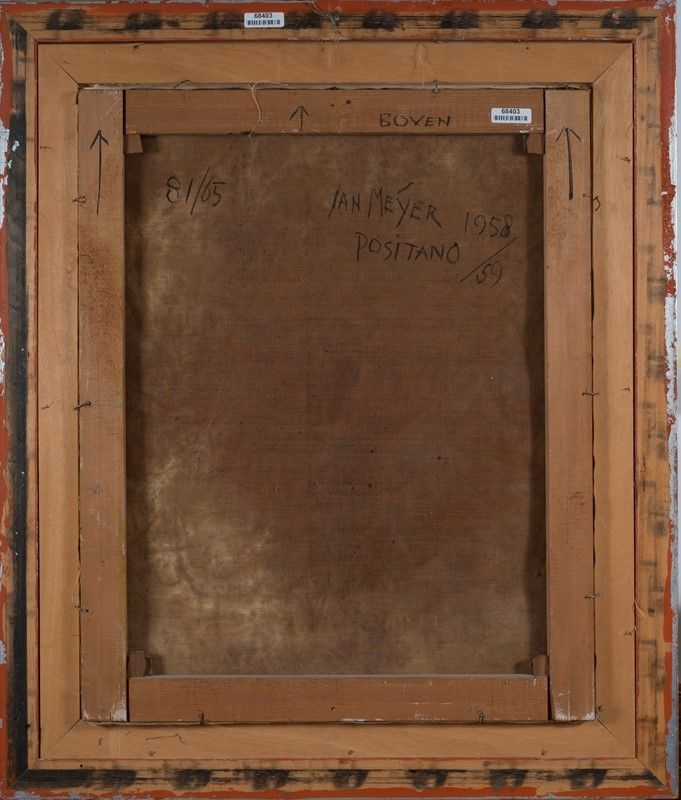 68403
BOVEN
68403
81/65
JAN MEYER 1958
POSITANO /59